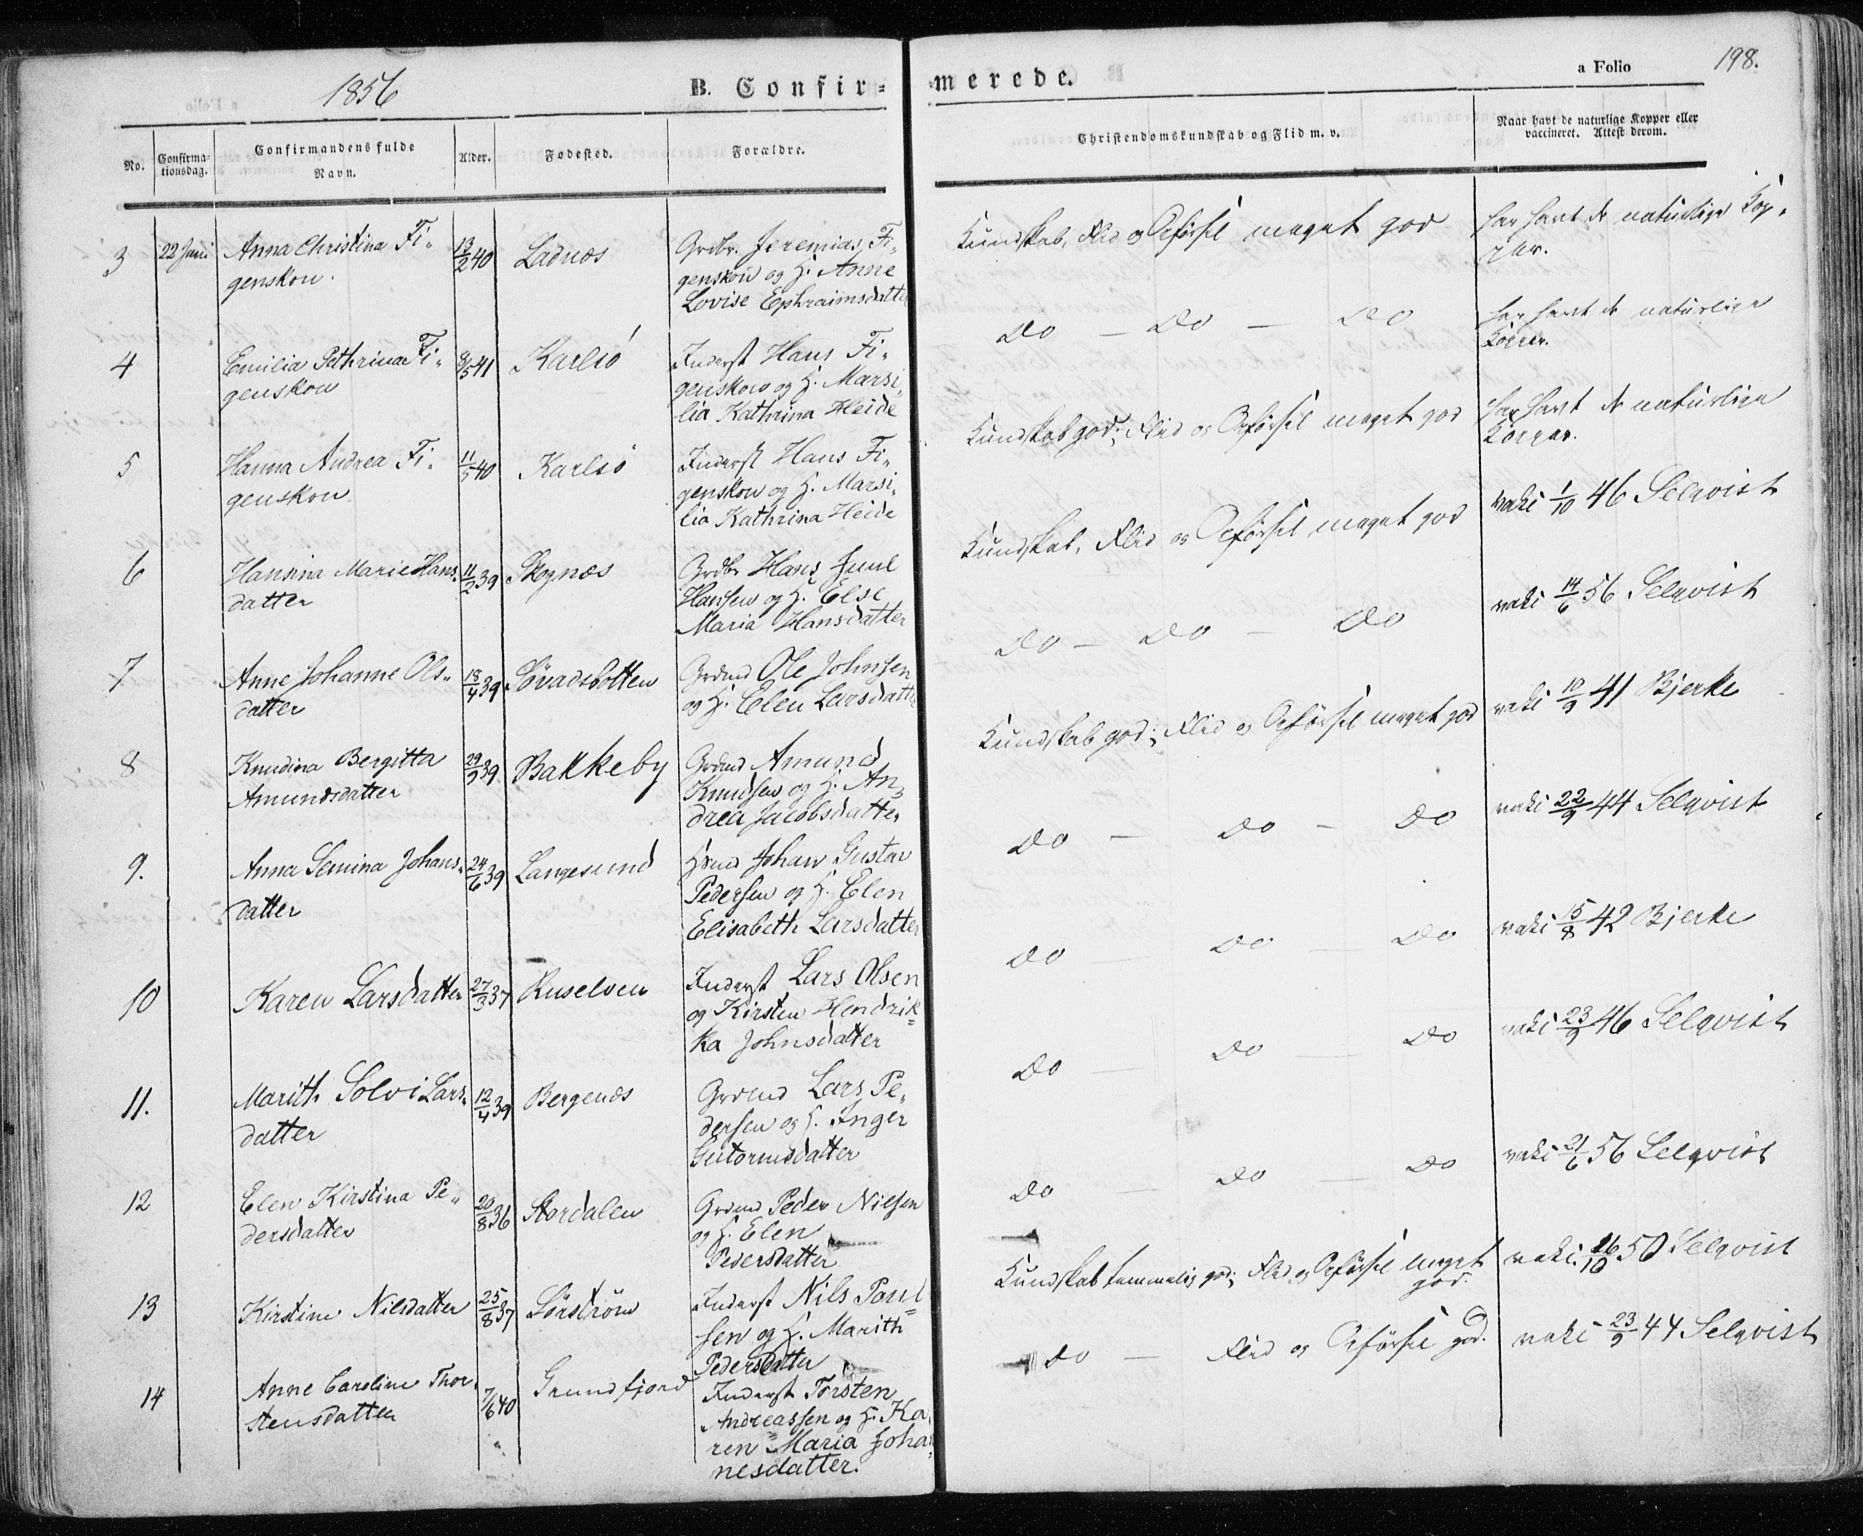 1856
B. Confir-
merede.
a Folio
198.
No.
Confirma-
tionsdag.
Confirmandens fulde
Navn.
Alder.
Fødested.
Forældre.
Christendomskundskab og Flid m. v.
Naar havt de naturlige Kopper eller
vaccineret. Attest derom.
3
22 Juni
Anna Christina Fi-
genskou.
13/2 40
Ladnæs
Grdbr. Jeremias Fi-
genskou og H. Anne
Lovise Ephraimsdatter
Kundskab, Flid og Opførsel meget god
har havt de naturlige Kop-
per.
4
Emilia Cathrina Fi-
genskou
8/5 41
Karlsö
Inderst Hans Fi-
genskou og H. Marsi-
lia Kathrina Heide
Do — Do — Do
har havt de naturlige
Kopper.
5
Hanna Andrea Fi-
genskou
11/5 40
Karlsö
Inderst Hans Fi-
genskou og H. Marsi-
lia Kathrina Heide
Kundskab god; Flid og Opførsel meget god
har havt de naturlige
Kopper.
6
Hannina Marie Hans-
datter
11/2 39
Skognæs
Grdbr Hans Juul
Hansen og H. Else
Maria Hansdatter
Kundskab, Flid og Opførsel meget god
vaki 1/10 46 Selqvist
7
Anne Johanne Ols-
datter
18/4 39
Sövadsbotten
Grdmd Ole Johnsen
og H. Elen Larsdatter
Do — Do — Do
vaki 14/6 56 Selqvist
8
Knudina Bergitta
Amundsdatter
29/9 39
Bakkeby
Grdmd Amund
Knudsen og H. An-
drea Jacobsdatter
Kundskab god; Flid og Opførsel meget god
vaki 10/9 41 Bjerke
9.
Anna Semina Johans-
datter
24/6 39
Langesund
Hsmd Johan Gustav
Pedersen og H. Elen
Elisabeth Larsdatter
Do — Do — Do
vaki 22/9 44 Selqvist
10
Karen Larsdatter
27/3 37
Ruselven
Inderst Lars Olsen
og Kirsten Hendrik-
ka Johnsdatter
Do — Do — Do
vaki 15/8 42 Bjerke
11.
Marith Solvi Lars-
datter
12/4 39
Bergenæs
Grdmd Lars Pe-
dersen og H. Inger
Guttormsdatter
Do — Do — Do
vaki 23/9 46 Selqvist
12
Elen Kirstina Pe-
dersdatter
20/8 36
Stordalen
Grdmd Peder Nilsen
og H. Elen
Pedersdatter
Do — Do — Do
vaki 21/6 56 Selqvist
13
Kirstine Nilsdatter
25/8 37
Sörström
Inderst Nils Poul-
sen og H. Marith
Pedersdatter
Kundskab temmelig god; Flid og Opførsel meget
god.
vaki. 16/10 50 Selqvist
14
Anne Caroline Thor-
stensdatter
7/6 40
Grundfjord
Inderst Torsten
Andreassen og H. Ka-
ren Maria Joha-
nesdatter.
Do — Flid og Opførsel god.
vaki 23/9 44 Selqvist